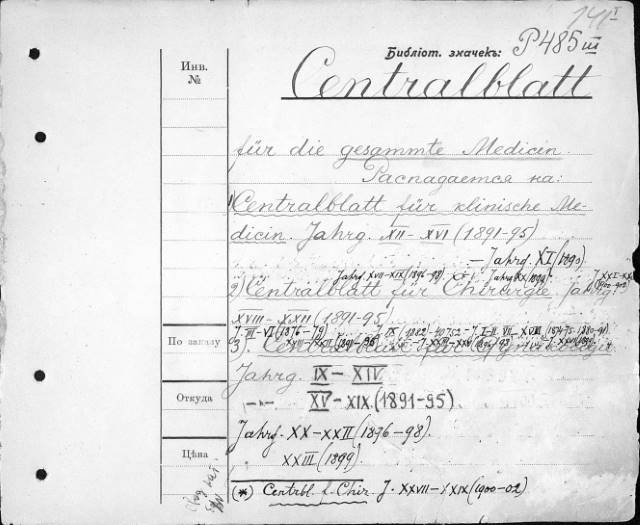 141 I
Библіот. значекъ: P485 III
Инв.
№
Centralblatt
für die gesammte Medicin.
Распадается на:
1) Centralblatt für klinische Me-
dicin. Jahrg. XII–XVI (1891-95)
– Jahrg. XI (1890)
Jahrg. XVII–XIX (1896-98)
2) Centralblatt für Chirurgie Jahrg.
XVIII–XXII (1891-95)
J. III–VI (1876-79)
По заказу
3). Centralblatt für Gynäkologie
Jahrg. IX–XIV
Откуда
–"– XV–XIX. (1891-95).
Jahrg. XX–XXII (1896-98).
Цѣна
" XXIII (1899)
(*) Centrbl. f. Chir. J. XXVII–XXIX (1900-02)